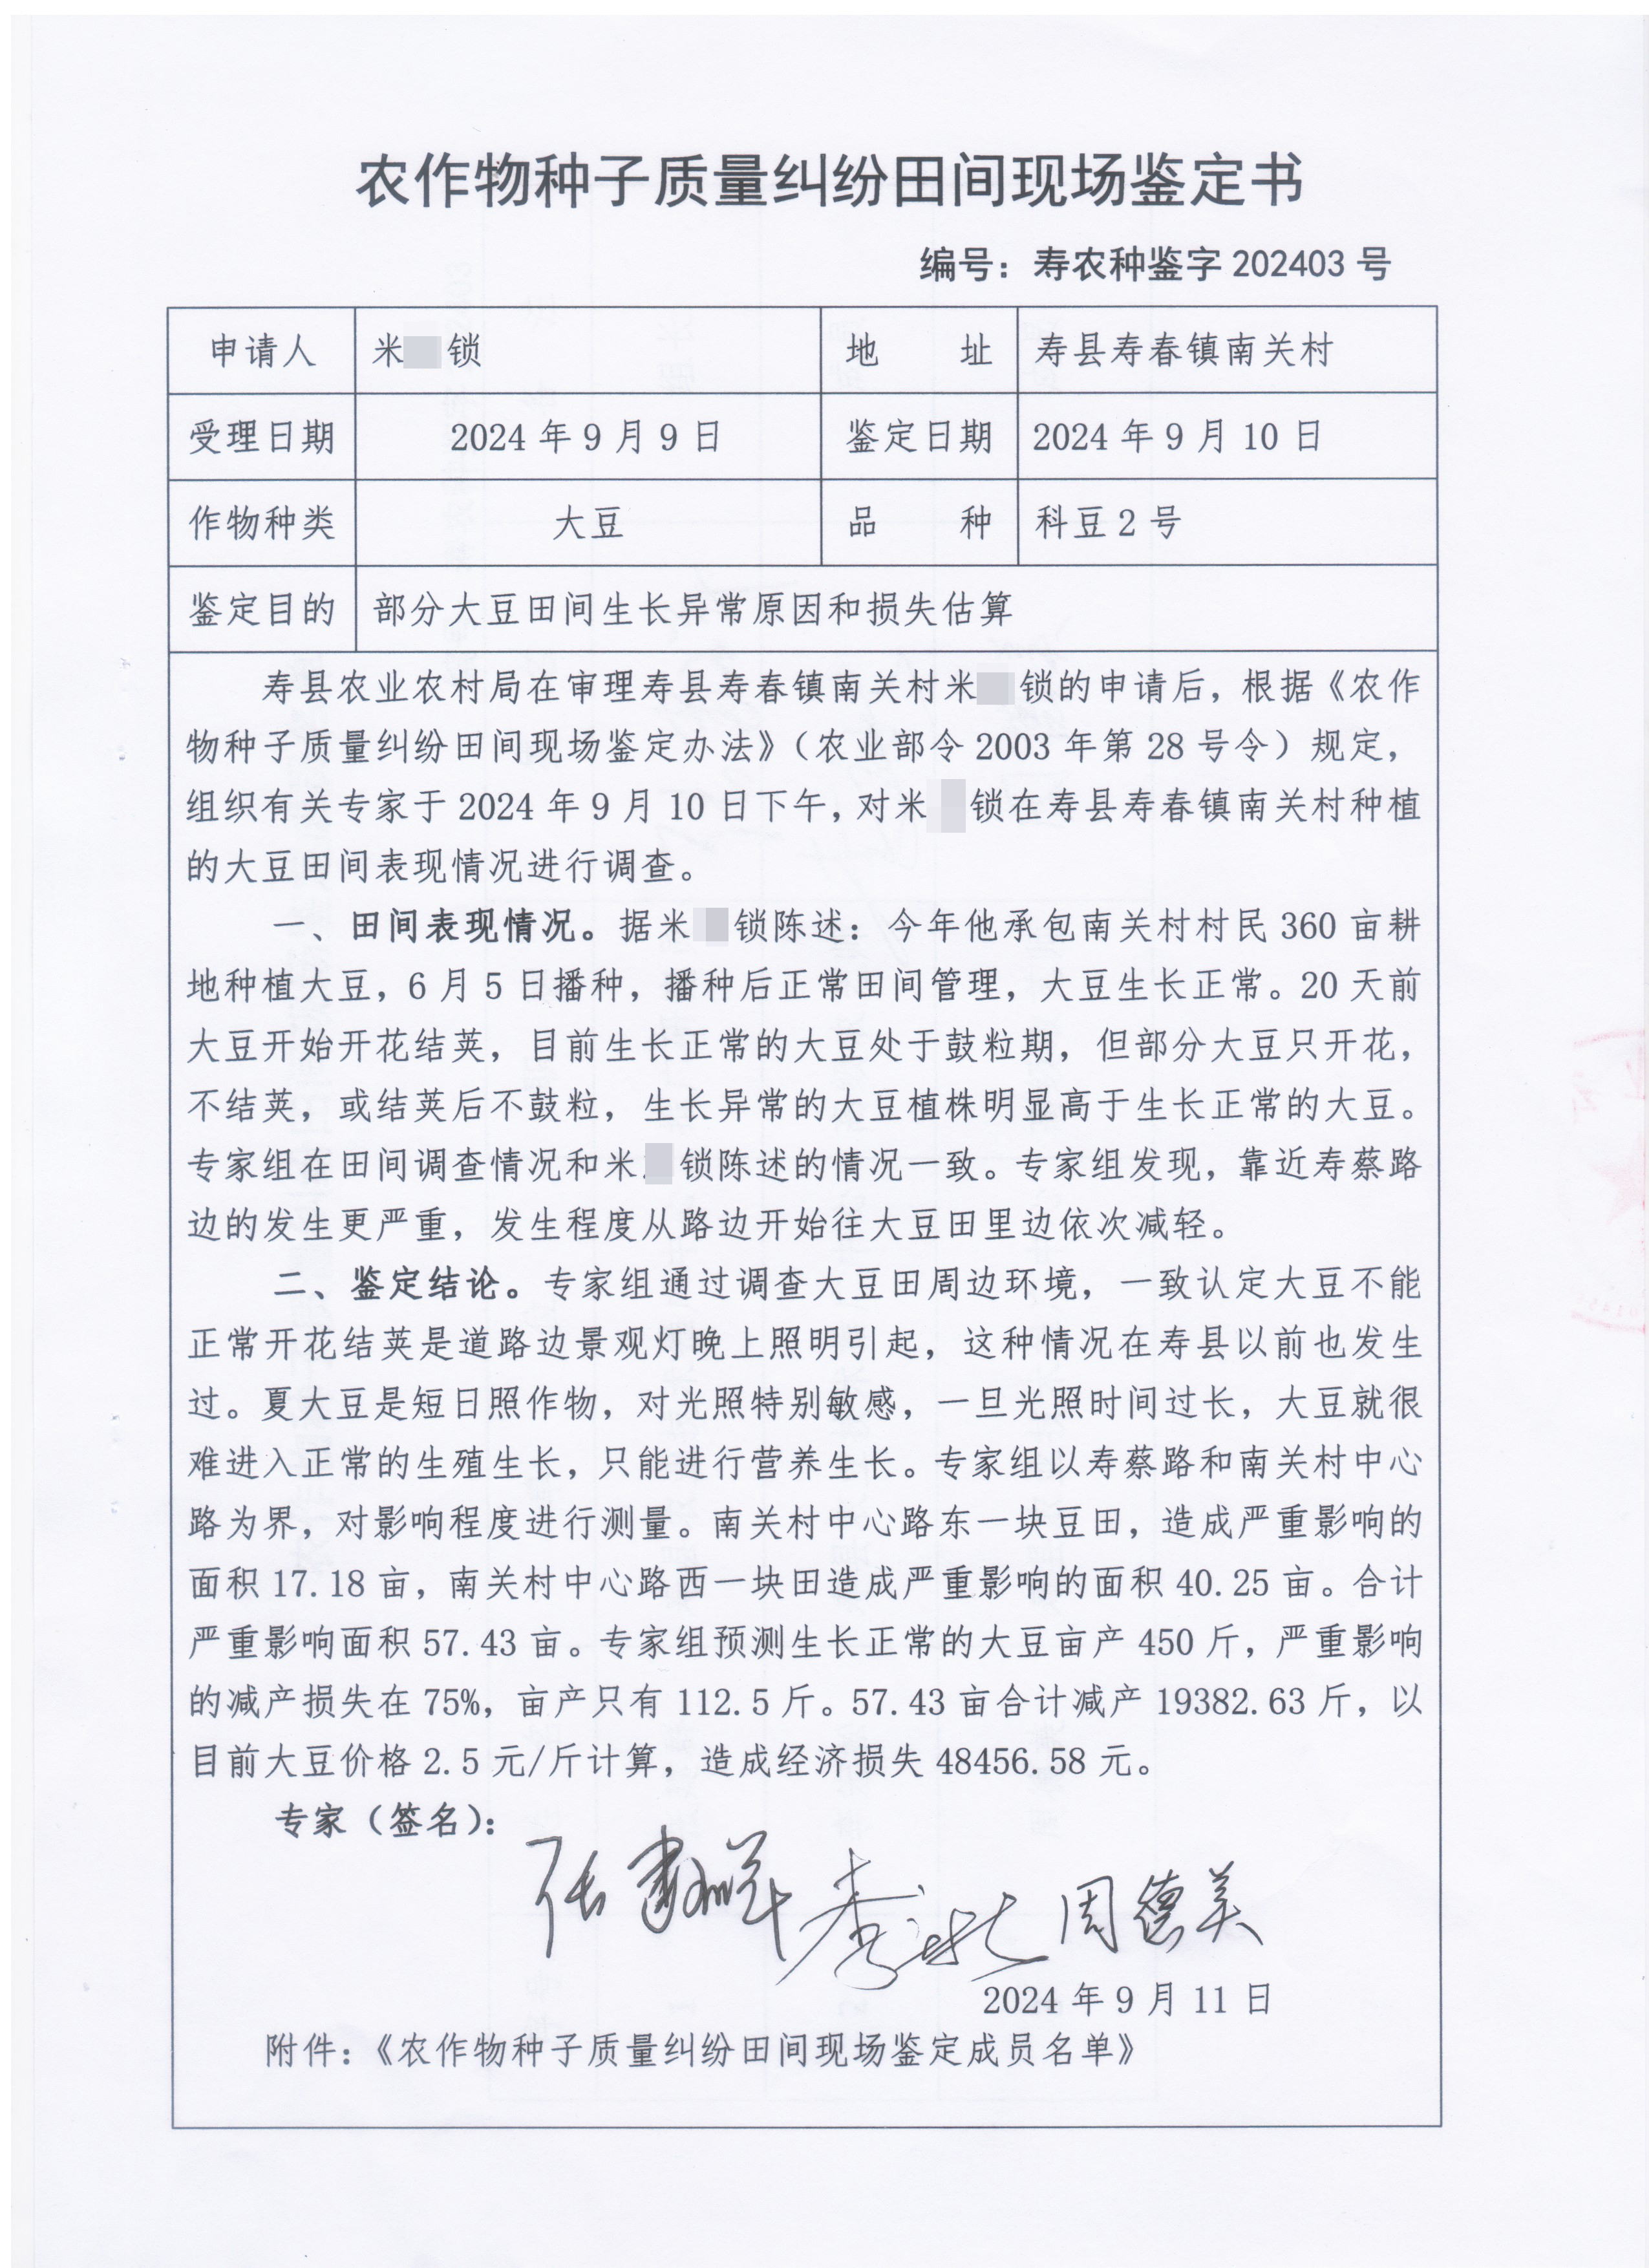 农作物种子质量纠纷田间现场鉴定书
编号：寿农种鉴字 202403 号
申请人 米 锁 地 址 寿县寿春镇南关村
受理日期 2024 年 9 月 9 日 鉴定日期 2024 年 9 月 10 日
作物种类 大豆 品 种 科豆 2 号
鉴定目的 部分大豆田间生长异常原因和损失估算
寿县农业农村局在审理寿县寿春镇南关村米 锁的申请后，根据《农作
物种子质量纠纷田间现场鉴定办法》（农业部令 2003 年第 28 号令）规定，
组织有关专家于 2024 年 9 月 10 日下午，对米 锁在寿县寿春镇南关村种植
的大豆田间表现情况进行调查。
一、田间表现情况。据米 锁陈述：今年他承包南关村村民 360 亩耕
地种植大豆，6 月 5 日播种，播种后正常田间管理，大豆生长正常。20 天前
大豆开始开花结荚，目前生长正常的大豆处于鼓粒期，但部分大豆只开花，
不结荚，或结荚后不鼓粒，生长异常的大豆植株明显高于生长正常的大豆。
专家组在田间调查情况和米 锁陈述的情况一致。专家组发现，靠近寿蔡路
边的发生更严重，发生程度从路边开始往大豆田里边依次减轻。
二、鉴定结论。专家组通过调查大豆田周边环境，一致认定大豆不能
正常开花结荚是道路边景观灯晚上照明引起，这种情况在寿县以前也发生
过。夏大豆是短日照作物，对光照特别敏感，一旦光照时间过长，大豆就很
难进入正常的生殖生长，只能进行营养生长。专家组以寿蔡路和南关村中心
路为界，对影响程度进行测量。南关村中心路东一块豆田，造成严重影响的
面积 17.18 亩，南关村中心路西一块田造成严重影响的面积 40.25 亩。合计
严重影响面积 57.43 亩。专家组预测生长正常的大豆亩产 450 斤，严重影响
的减产损失在 75%，亩产只有 112.5 斤。57.43 亩合计减产 19382.63 斤，以
目前大豆价格 2.5 元/斤计算，造成经济损失 48456.58 元。
专家（签名）：
周德美
2024 年 9 月 11 日
附件：《农作物种子质量纠纷田间现场鉴定成员名单》